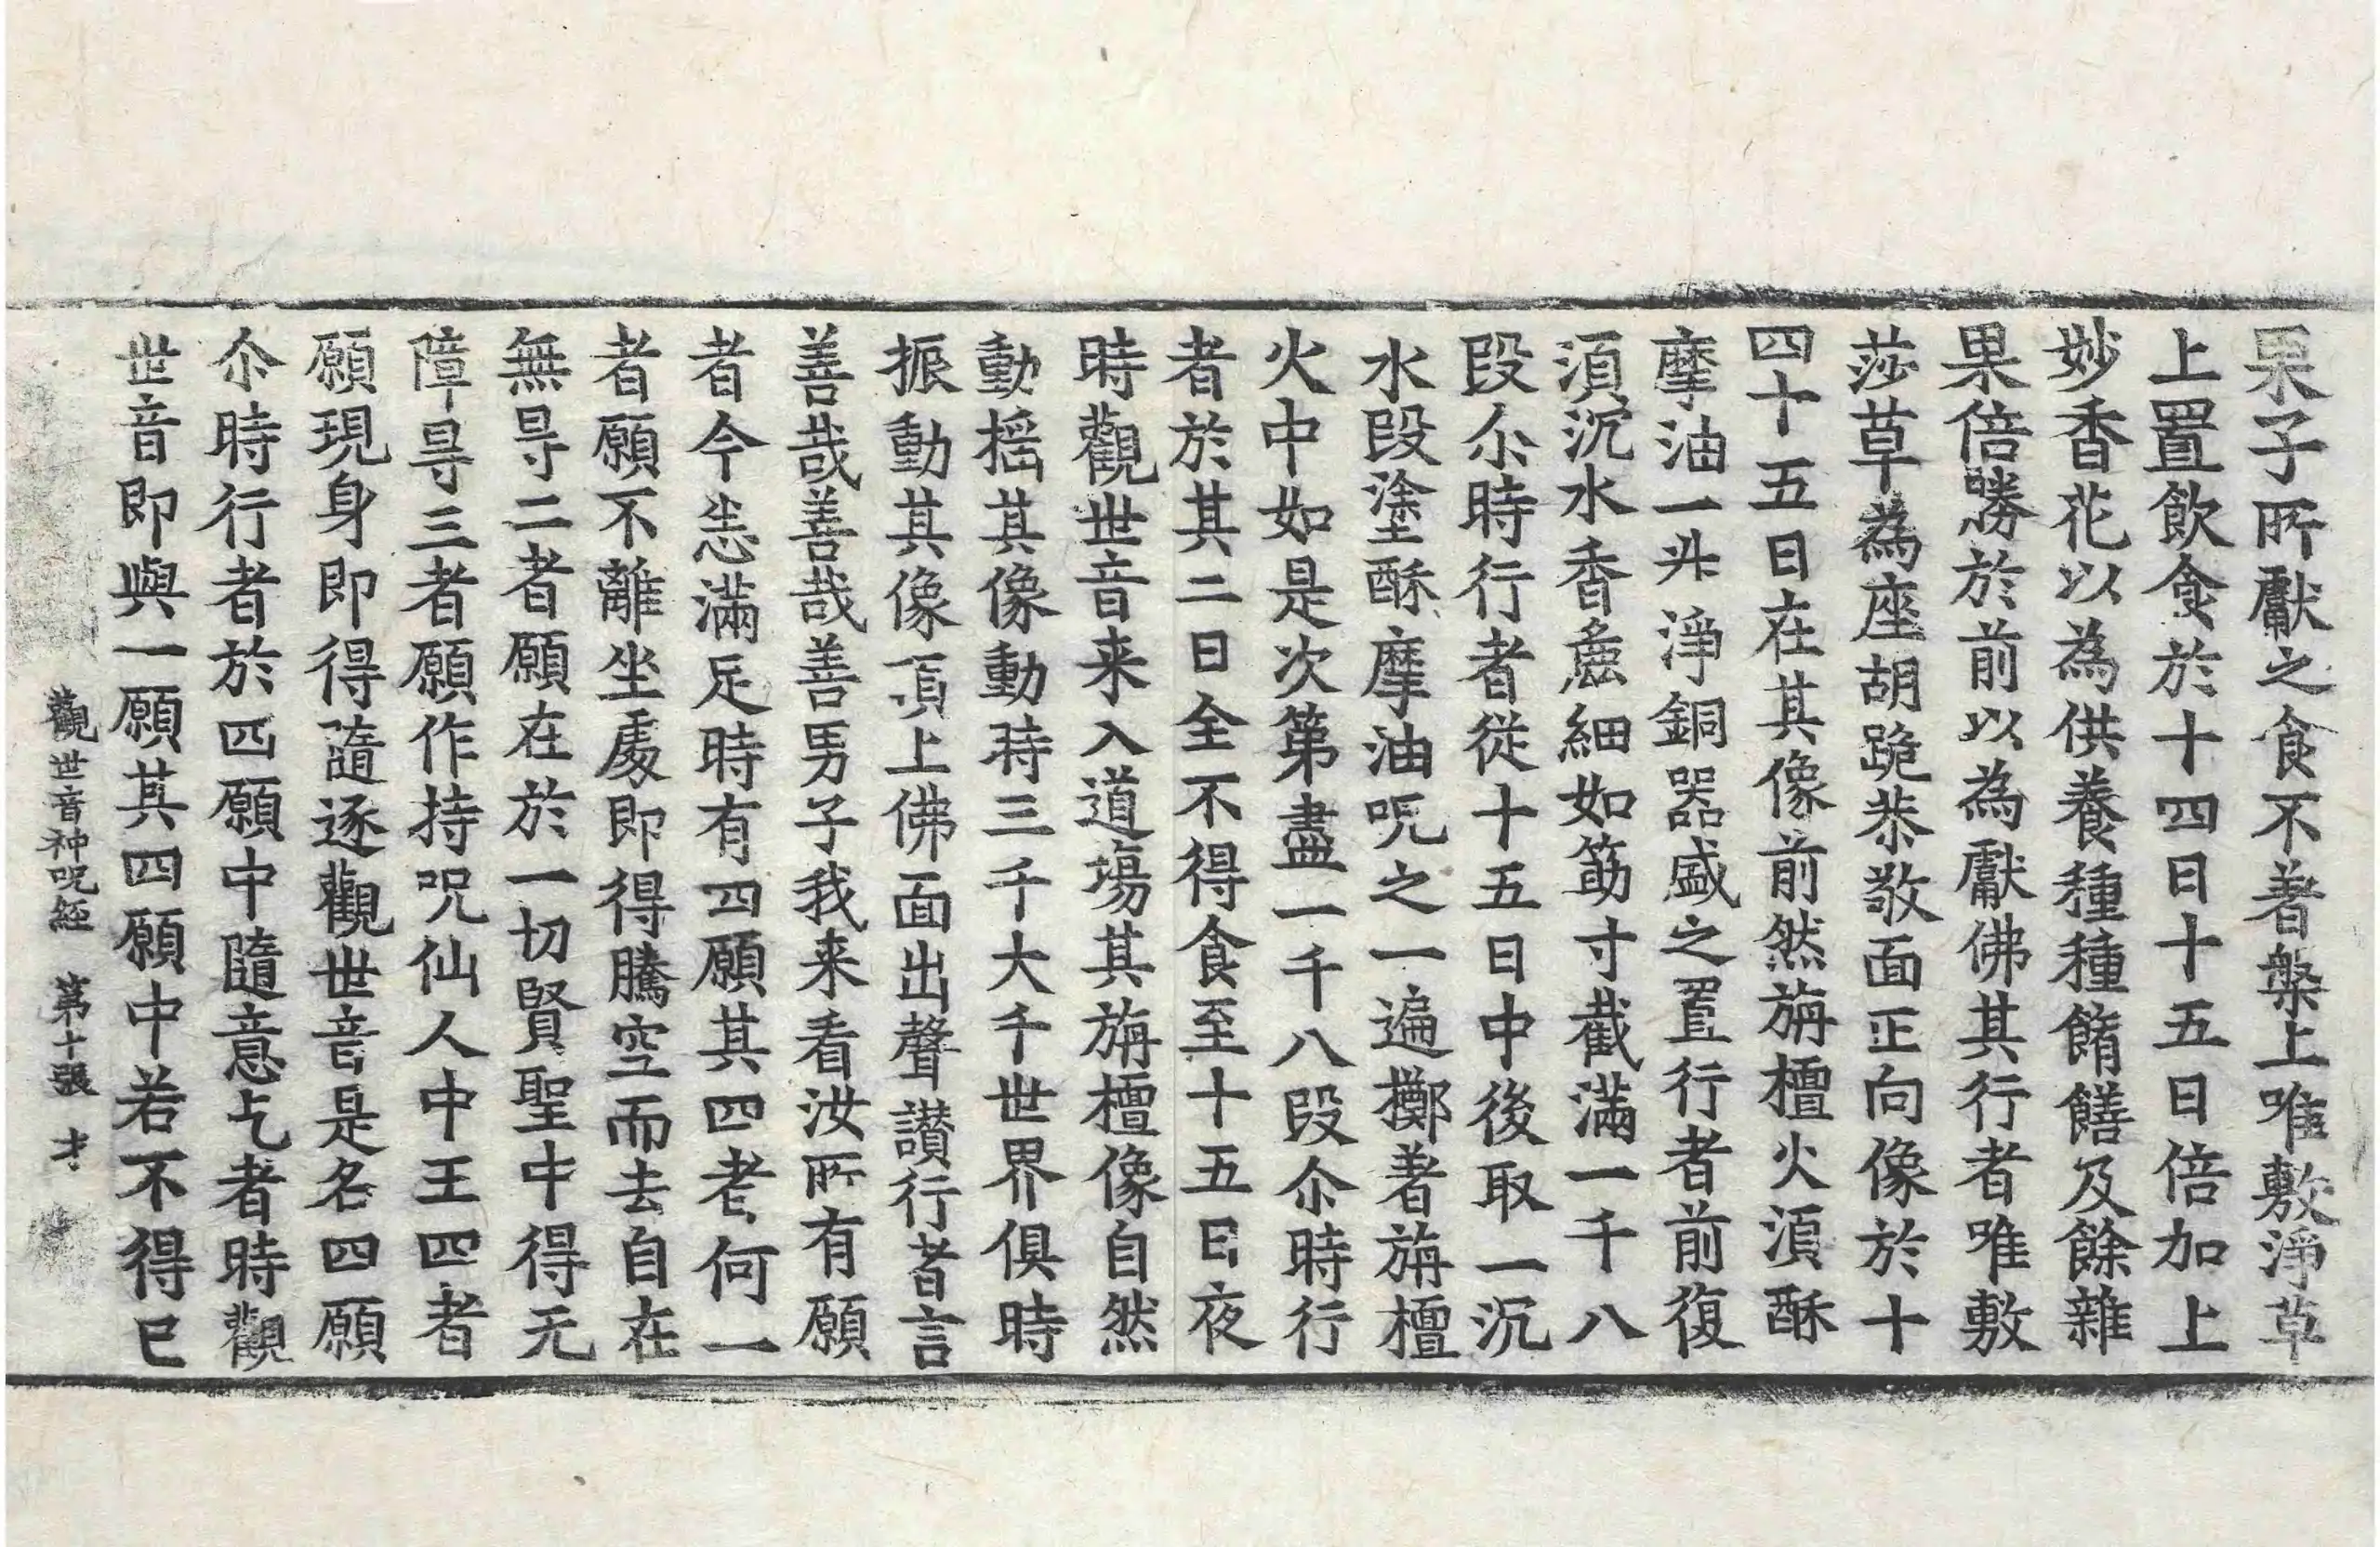 果子所獻之食不著槃上唯敷淨草
上置飲食於十四日十五日倍加上
妙香花以為供養種種餚饍及餘雜
果倍勝於前以為獻佛其行者唯敷
莎草為座胡跪恭敬面正向像於十
四十五日在其像前然旃檀火湏酥
摩油一升淨銅器盛之置行者前復
湏沉水香麁細如筯寸截滿一千八
段尒時行者従十五日中後取一沉
水段塗酥摩油呪之一遍擲著旃檀
火中如是次第盡一千八段尒時行
者於其二日全不得食至十五日夜
時觀世音来入道場其旃檀像自然
動揺其像動時三千大千世界俱時
振動其像頂上佛面出聲讃行者言
善哉善哉善男子我来看汝所有願
者今恙滿足時有四願其四者何一
者願不離坐處即得騰空而去自在
無㝵二者願在於一切賢聖中得无
障㝵三者願作持呪仙人中王四者
願現身即得隨逐觀世音是名四願
尒時行者於四願中隨意乞者時觀
世音即與一願其四願中若不得已
觀世音神呪經 第十張 才